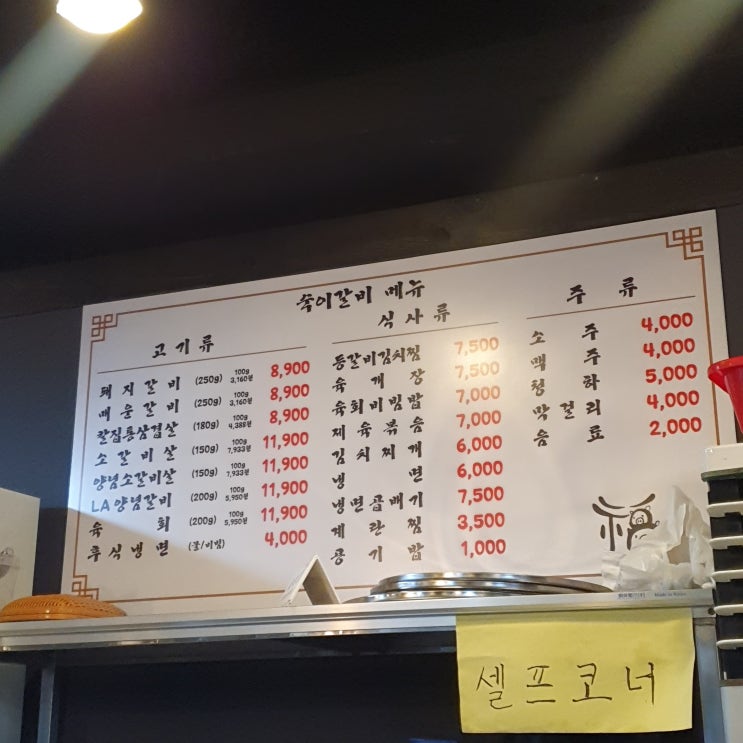 쑥이갈비 메뉴
고기류
돼지갈비 (250g) 100g 3,160원 8,900
매운갈비 (250g) 100g 3,160원 8,900
칼집통삼겹살 (180g) 100g 4,388원 8,900
소갈비살 (150g) 100g 7,933원 11,900
양념소갈비살 (150g) 100g 7,933원 11,900
LA양념갈비 (200g) 100g 5,950원 11,900
육회 (200g) 100g 5,950원 11,900
후식냉면 (물/비빔) 4,000
식사류
등갈비김치찜 7,500
육개장 7,500
육회비빔밥 7,000
제육볶음 7,000
김치찌개 6,000
냉면 6,000
냉면곱빼기 7,500
계란찜 3,500
공기밥 1,000
주류
소주 4,000
맥주 4,000
청하 5,000
막걸리 4,000
음료 2,000
福
셀프코너